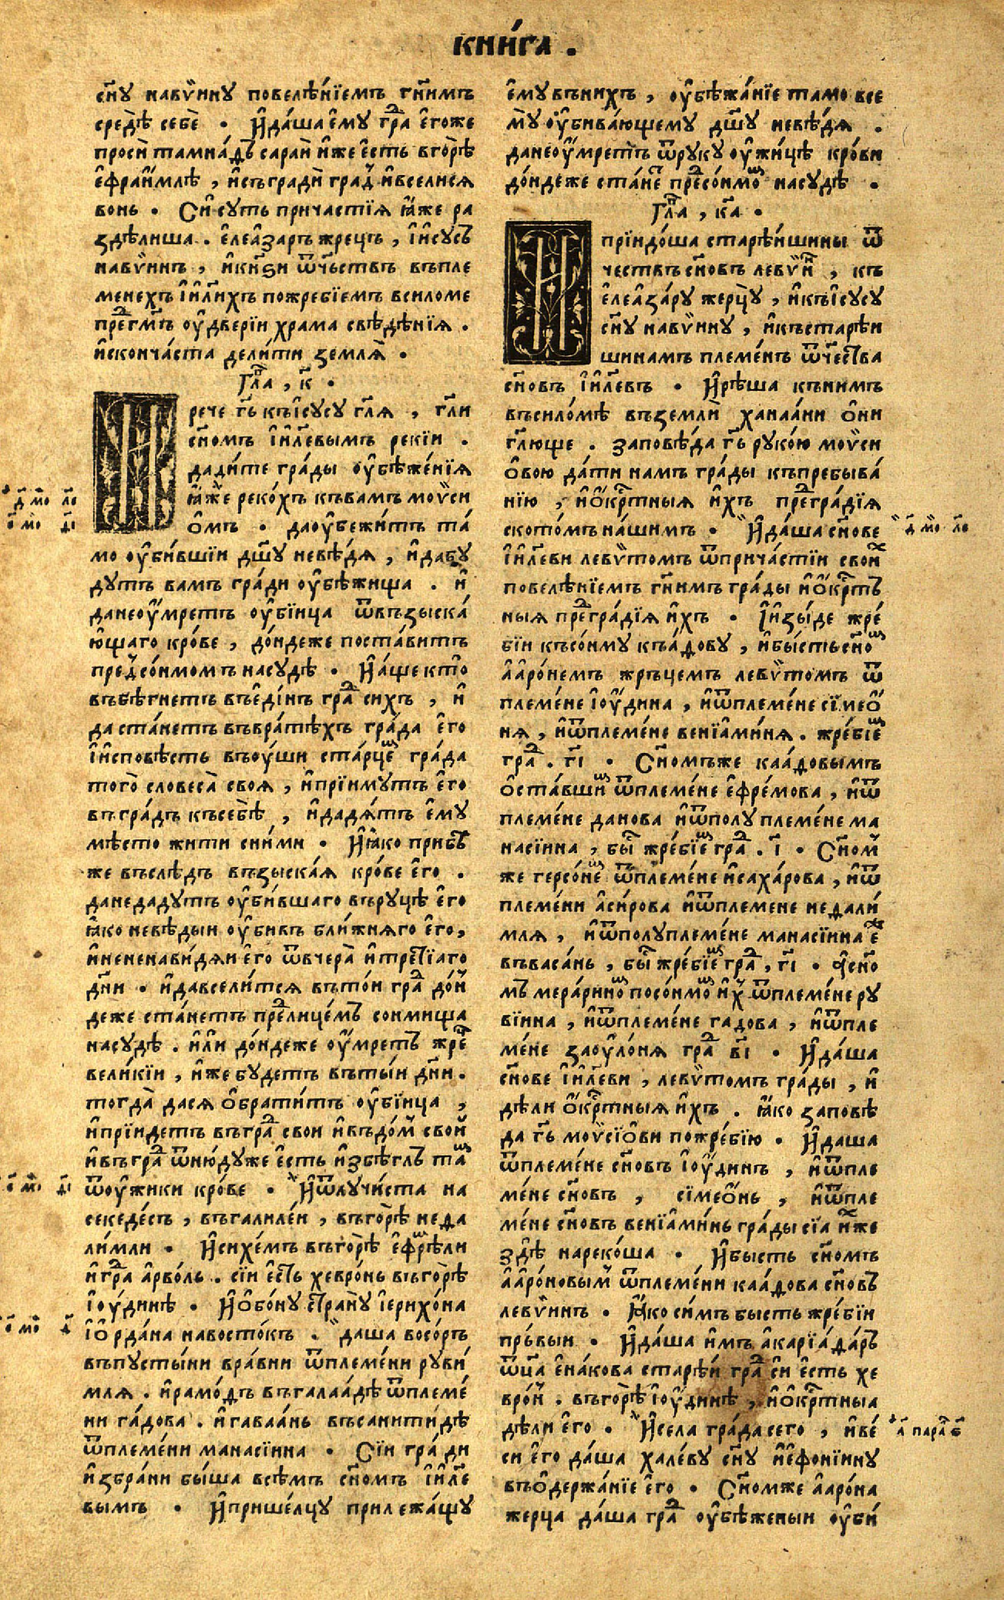 кни́га .
сн҃у навѵ̀ину повелѣ́нїемъ гн҃имъ
средѣ̀ себѐ . И҆да́ша є҆му̀ гра̑ є҆гоже
просѝ тамнаⷣъ сараѝ и҆́же є҆́сть вгорѣ̀
є҆фраи҆́млѣ , и҆съгради̑ граⷣ и҆вселисѧ
вонь . Сїѝ су́ть прича́стїѧ ꙗ҆́же ра
здѣли́ша . є҆леа҆́заръ жре́цъ , і҆и҆сусъ
навѵ̀инъ , и҆кн҃ѕи ѿче́ствъ въпле
мене́хъ і҆и҃лихъ пожребїемъ всиломе
преⷣ гм҃ъ ѹ҆две́рїи храма свѣдѣ́нїѧ .
и҆сконча́ста дели́ти землѧ̀ .
Гла̑ , к҃ .
И
рече гь҃ къі҆сусу гл҃ѧ , гл҃и
сн҃омъ і҆и҃левымъ рекїи .
дади́те гра́ды ѹ҆бѣже́нїѧ
ꙗ҆́же реко́хъ къвамъ моѵ̀си
о҆́мъ . даѹ҆бежи́тъ та́
мо ѹ҆би́вшїи дш҃у невѣ́дѧ , и҆дабꙋ́
дутъ вамъ гра́ди ѹ҆бѣ́жища . и҆
данеѹ҆́мретъ ѹ҆бїица ѿвъзыска́
ю҆щаго кро́ве , до́ндеже поста́витъ
преⷣсо́нмомъ насудѣ̀ . И҆а́ще кто̀
въбѣ́гнетъ въє҆ди́нъ гра̑ сихъ , и҆
да ста́нетъ въврата́хъ гра́да є҆го̀
и҆и҆сповѣ́сть въо́уши ста́рцеⷨ гра́да
того̀ словеса̀ своѧ̀ , и҆прїи́мутъ є҆го̀
въ гра́дъ къ себѣ̀ , и҆дадѧ́тъ є҆му̀
мѣ́сто жи́ти сни́ми . И҆ꙗ҆́ко прибꙋ̀
же въслѣ́дъ възыска́ѧ кро́ве є҆го̀ .
данедаду́тъ ѹ҆би́вшаго вру́цѣ є҆го̀
ꙗ҆́ко невѣ́дыи ѹ҆би́въ бли́жнѧго є҆го̀ ,
и҆ненена́видѧи є҆го̀ ѿвчера̀ и҆тре́тїаго
дн҃и . и҆давсели́тсѧ въто́и гра̑ до́н
деже ста́нетъ преⷣлице́мъ сонмища
насудѣ̀ . и҆лѝ до́ндеже ѹ҆́мретъ жре̑
вели́кїи , и҆́же бу́детъ вътыѝ дн҃и .
тогда̀ дасѧ ѻ҆брати́тъ ѹ҆бїица ,
и҆прїи́детъ въгра̑ свои и҆въдоⷨ свои̑
и҆въгра̑ ѿню́дуже є҆́сть и҆збѣ́глъ таⷨ
ѿѹ҆́жики кро́ве . И҆ѿлучи́ста на
секеде́съ , въгалиле́и , въго́рѣ неда
ли́мли . И҆сихе́мъ въго́рѣ є҆фреⷨли
и҆гра̑ а҆рво́ль . сїи є҆́сть хевро́нь въго́рѣ
і҆ѹ́динѣ . И҆ѻ҆бону̀ страну̀ і҆ерихо́на
і҆ѻ҆рда́на навосто́къ . даша восо́ръ
въпусты́ни вра́вни ѿплеме́ни руви́
млѧ . и҆рамо́дъ въгалаа́дѣ ѿплеме́
ни га́дова . и҆гаваа́нь въсанити́дѣ
ѿплеме́ни манасі́нна . Сїи гра́ди
и҆збра́ни бы́ша всѣ́мъ сн҃омъ і҆и҃ле
вымъ . И҆прише́лцу прилежа́щу
є҆му въни́хъ , ѹ҆бѣжа́нїе тамо все
мꙋ̀ ѹ҆бива́ющему дш҃у невѣ́дѧ .
данеѹ҆́мретъ ѿруку ѹ҆́жицѣ кро́ви
до́ндеже ста́неⷮ преⷣсо́нмоⷨ насудѣ̀ .
Гла̑ , к҃а .
И
прїидо́ша старѣ́ишины ѿ
че́ствъ сн҃овъ левѵ̀ иⷯ , къ
є҆леа҆за́ру жерцу̀ , и҆къі҆сусу
сн҃у навѵ̀ину , и҆къстарѣ́и
шинамъ племе́нъ ѿче́ства
сн҃овъ і҆и҃левъ . И҆рѣ́ша къни́мъ
въсило́мѣ въземлѝ ханаа́ни ѻ҆ни
гл҃юще . заповѣ́да гь҃ руко́ю моѵ̀си
ѻ҆́вою да́ти намъ гра́ды къпребыва́
нїю , и҆ѻ҆крⷭ҇тныѧ и҆́хъ преⷣгра́дїѧ
ско́томъ на́шимъ . И҆да́ша сн҃ове
і҆и҃леви левѵ̀томъ ѿприча́стїи своиⷯ
повелѣ́нїемъ гн҃имъ гра́ды и҆ѻ҆крⷭ҇т
ныѧ преⷣгра́дїѧ и҆́хъ . І҆и҆зы́де жре́
бїи къ со́нму каа́дову , и҆бы́сть сн҃оⷨ
а҆аро́немъ жрьце́мъ левѵ̀томъ ѿ
племе́не і҆ѹ́дина , и҆ѿплеме́не сїмеѻ҆́
нѧ , и҆ѿплеме́не венїами́нѧ . жре́бїеⷨ
гра̑ . г҃і . Сн҃омъже каа́довымъ
ѻ҆ста́вшиⷨ ѿплеме́не є҆фре́мова , и҆ѿ
племе́не данова и҆ѿполу племе́не ма
насїина , бы̑ жре́бїеⷨ гра̑ . і҃ . Сн҃оⷨ
же герсо́неⷨ ѿплеме́не и҆саха́рова , и҆ѿ
племе́ни а҆си́рова и҆ѿплемене недали́
млѧ , и҆ѿполуплеме́не манасїина є҆́
въваса́нь , бы̑ жре́бїеⷨ гра̑ , г҃і . а҆сн҃о
мъ мера́риноⷨ посо́нмоⷨ и҆ⷯ ѿплеме́не ру
ві́има , и҆ѿплеме́не га́дова , и҆ѿпле
ме́не заѹло́нѧ гра̑ в҃і . И҆да́ша
сн҃ове і҆и҃леви , левѵ̀томъ гра́ды , и҆
дѣ́ли ѻ҆крⷭ҇тныѧ и҆́хъ . ꙗ҆́ко заповѣ́
да гь҃ моѵ̀сїѻ҆ви пожре́бїю . И҆да́ша
ѿплеме́не сн҃овъ і҆ѹ́динъ , и҆ѿпле
ме́не сн҃овъ , сїмеѻ҆нь , и҆ѿпле
ме́не сн҃овъ венїами́нь гра́ды сїа и҆́же
здѣ̀ нареко́ша . И҆бы́сть сн҃омъ
а҆аро́новыⷨ ѿплеме́ни каа́дова сн҃овъ
левѵ̀инъ . ꙗ҆́ко симъ бысть жре́бїи
пръ́выи . И҆да́ша и҆́мъ а҆карїа́да́ръ
ѿц҃а є҆на́кова старѣ́и гра̑ си є҆́сть хе
вроⷩ . въго́рѣ і҆ѹ́динѣ , и҆ѻ҆крⷭ҇тныа
дѣ́ли є҆го . И҆села гра́да сего̀ , и҆ве́
си є҆го да́ша хале́ву сн҃у и҆є҆фонїину
въѻ҆держа́нїе є҆го . Сн҃омже а҆аро́на
жерца да́ша гра̑ ѹ҆бѣ́женыи ѹ҆би́